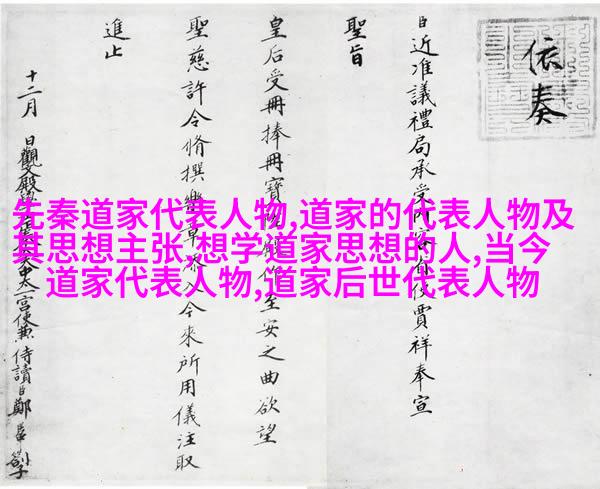 依奏
臣近准議禮局承受賈祥奉宣
聖旨
皇后受冊捧冊寶至安之曲欲望
聖慈許令脩撰樂章入今來所用儀注取
進止
十二月 日觀文殿太一宮使兼侍讀臣鄭
先秦道家代表人物,道家的代表人物及
其思想主张,想学道家思想的人,当今
道家代表人物,道家后世代表人物